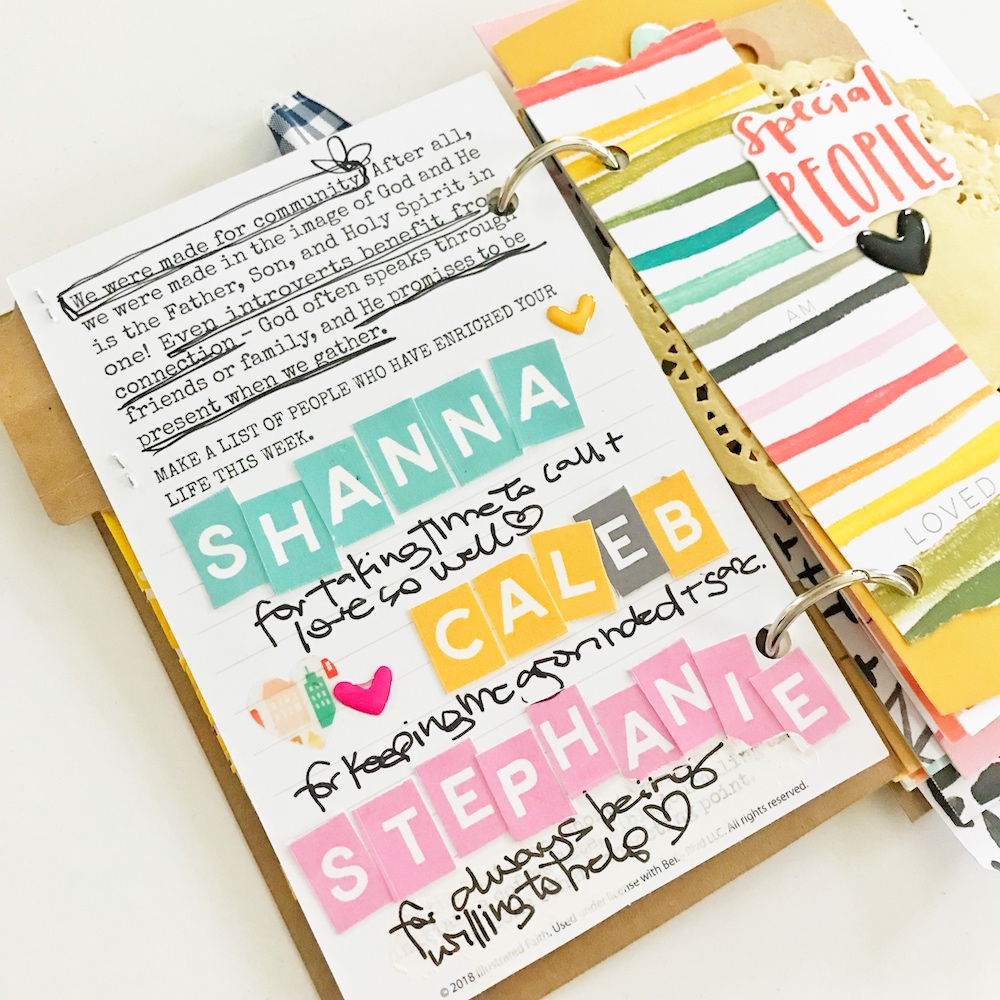 We were made for community! After all,
we were made in the image of God and He
is the Father, Son, and Holy Spirit in
one! Even introverts benefit from
connection – God often speaks through
friends or family, and He promises to be
present when we gather.
MAKE A LIST OF PEOPLE WHO HAVE ENRICHED YOUR
LIFE THIS WEEK.
SHANNA
for taking time to call +
love so well
CALEB
for keeping me grounded + safe.
STEPHANIE
for always being
willing to help
point.
© 2018 Illustrated Faith. Used under license with Bella Blvd LLC. All rights reserved.
Special
PEOPLE
I
AM
LOVED